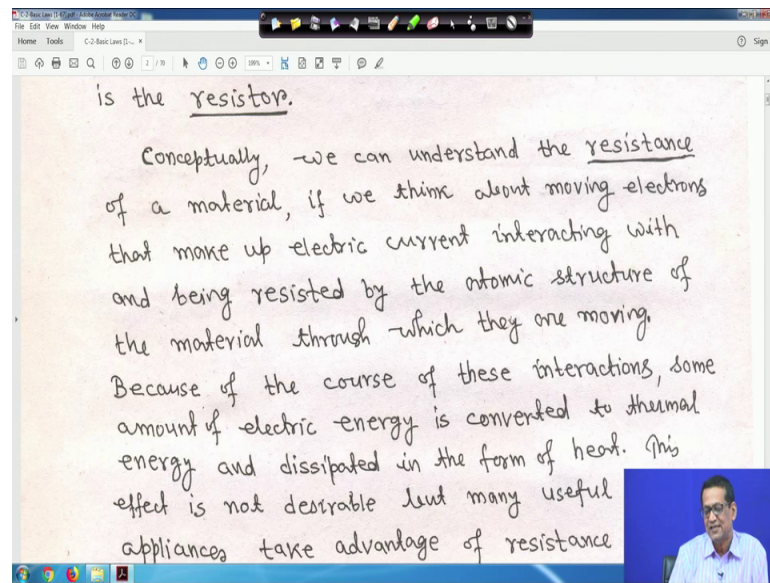 C-2-Basic Laws [1-67].pdf - Adobe Acrobat Reader DC
File Edit View Window Help
Home Tools C-2-Basic Laws [1-... × Sign
2 / 70 199%
is the resistor.
Conceptually, we can understand the resistance
of a material, if we think about moving electrons
that make up electric current interacting with
and being resisted by the atomic structure of
the material through which they are moving.
Because of the course of these interactions, some
amount of electric energy is converted to thermal
energy and dissipated in the form of heat. This
effect is not desirable but many useful
appliances take advantage of resistance